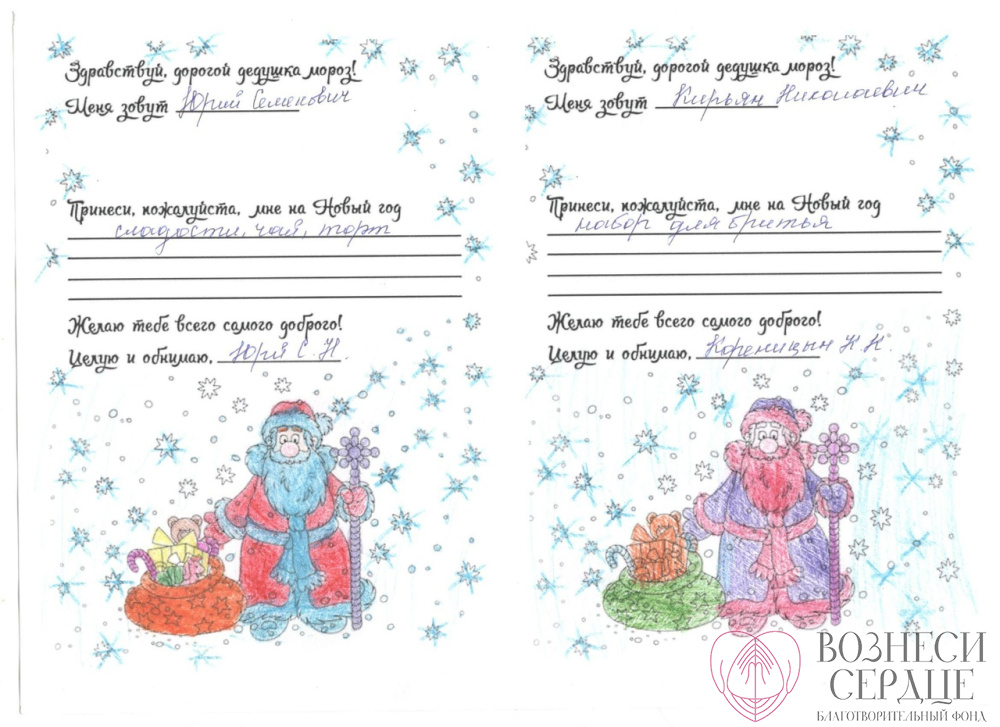 Здравствуй, дорогой дедушка мороз!
Меня зовут Юрий Семенович
Принеси, пожалуйста, мне на Новый год
сладости, чай, торт
Желаю тебе всего самого доброго!
Целую и обнимаю,
Здравствуй, дорогой дедушка мороз!
Меня зовут Кирьян Николаевич
Принеси, пожалуйста, мне на Новый год
набор для бритья
Желаю тебе всего самого доброго!
Целую и обнимаю, Кореницын К. Н.
ВОЗНЕСИ
СЕРДЦЕ
БЛАГОТВОРИТЕЛЬНЫЙ ФОНД